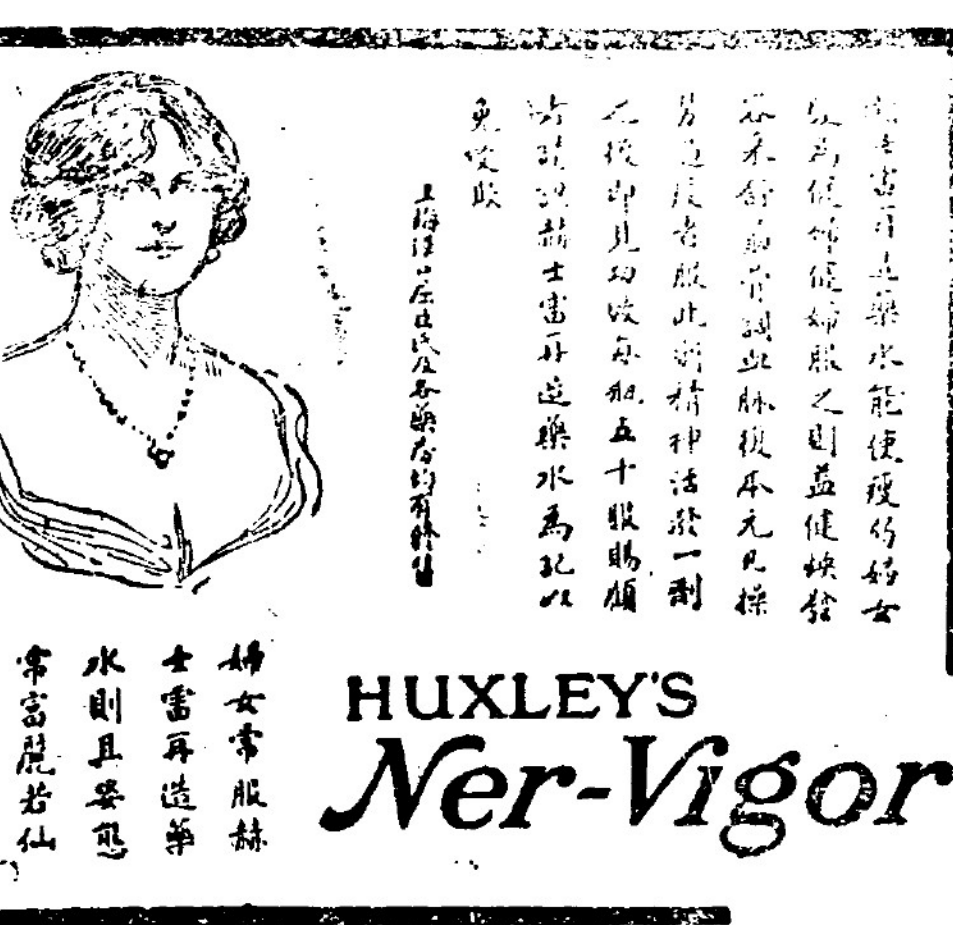 士雷再造藥水能使瘦婦女
為健婦服之則益健煥發
容采舒筋骨調血脉復本元凡操
勞過度者服此則精神活潑一劑
之後即見功效每瓶五十服賜顧
時請認赫士雷再造藥水為記以
免受欺
上海漢口屈臣氏及各藥房均有經售
婦女常服赫
士雷再造藥
水則且姿態
常富麗若仙
HUXLEY'S
Ner-Vigor